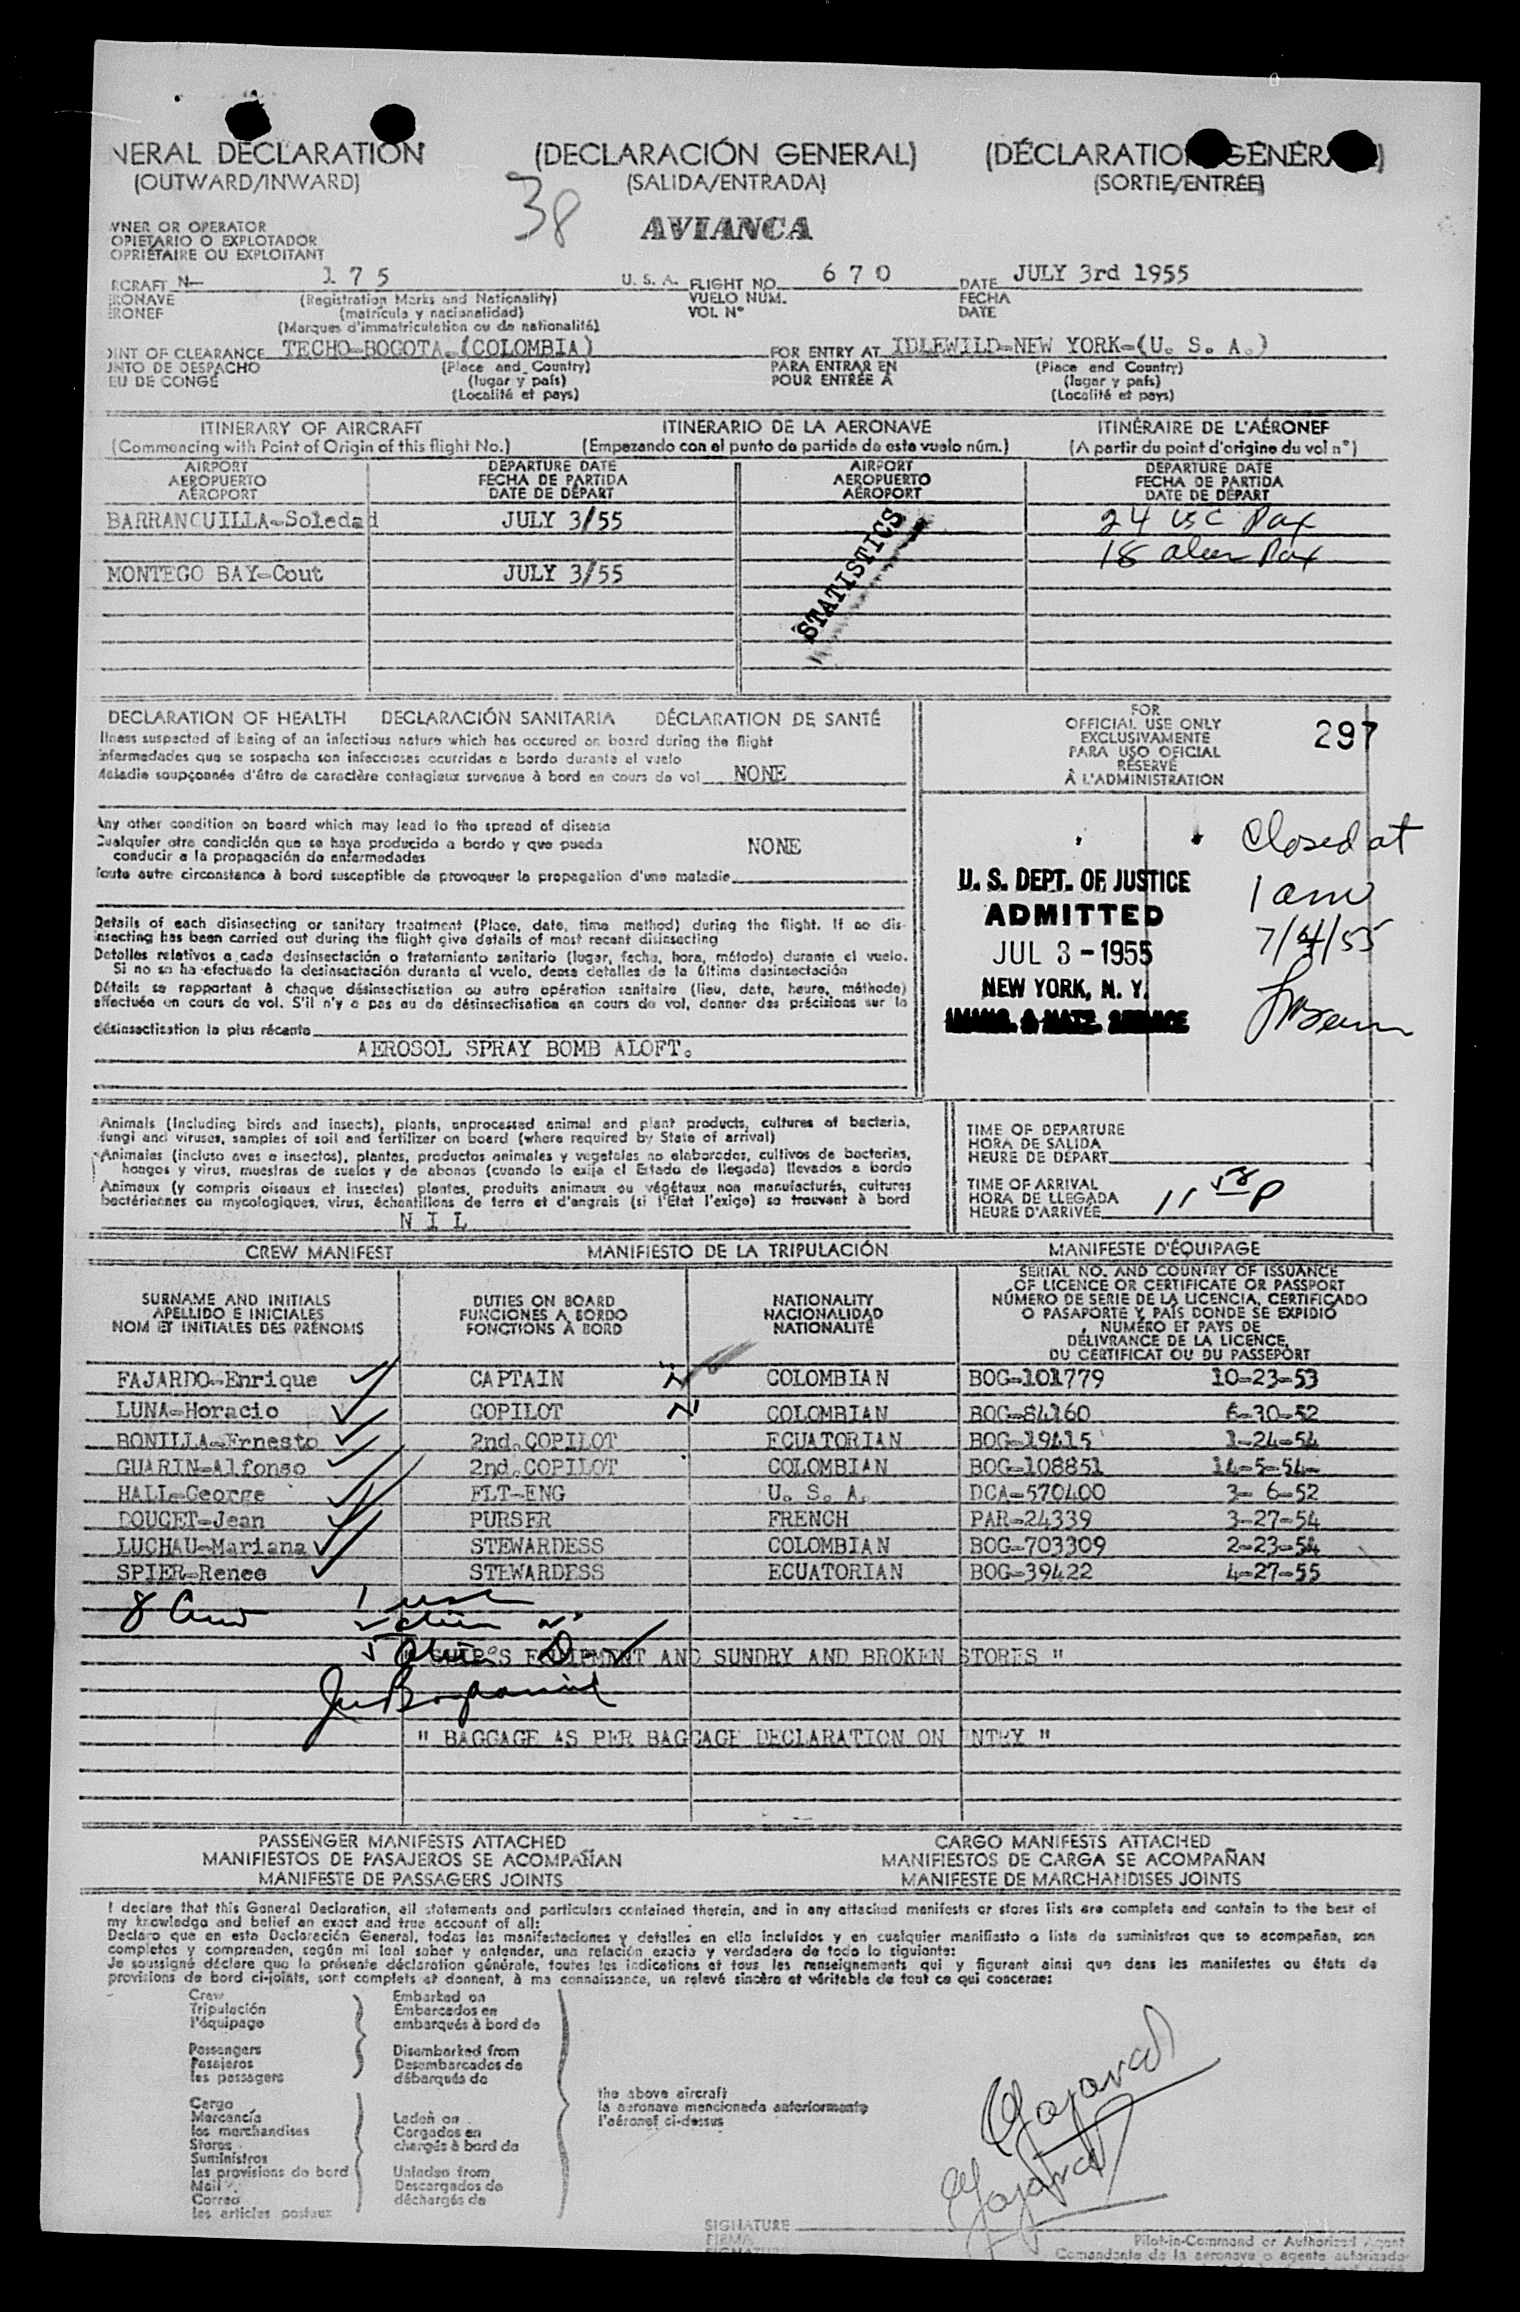 NERAL DECLARATION (DECLARACIÓN GENERAL) (DÉCLARATION GÉNÉRALE)
(OUTWARD/INWARD) (SALIDA/ENTRADA) (SORTIE/ENTRÉE)
38
WNER OR OPERATOR AVIANCA
OPIETARIO O EXPLOTADOR
OPRIÉTAIRE OU EXPLOITANT
RCRAFT N- 175 U. S. A. FLIGHT NO. 670 DATE JULY 3rd 1955
RONAVE (Registration Marks and Nationality) VUELO NÚM. FECHA
RONEF (matrícula y nacionalidad) VOL Nº DATE
(Marques d'immatriculation ou de nationalité)
OINT OF CLEARANCE TECHO-BOGOTA.(COLOMBIA) FOR ENTRY AT IDLEWILD-NEW YORK-(U. S. A.)
UNTO DE DESPACHO (Place and Country) PARA ENTRAR EN (Place and Country)
EU DE CONGÉ (lugar y país) POUR ENTRÉE À (lugar y país)
(Localité et pays) (Localité et pays)
ITINERARY OF AIRCRAFT ITINERARIO DE LA AERONAVE ITINÉRAIRE DE L'AÉRONEF
(Commencing with Point of Origin of this flight No.) (Empezando con el punto de partida de este vuelo núm.) (A partir du point d'origine du vol nº)
AIRPORT DEPARTURE DATE AIRPORT DEPARTURE DATE
AEROPUERTO FECHA DE PARTIDA AEROPUERTO FECHA DE PARTIDA
AÉROPORT DATE DE DÉPART AÉROPORT DATE DE DÉPART
BARRANCUILLA-Soledad JULY 3/55 24 USC Pax
18 alien Pax
MONTEGO BAY-Cout JULY 3/55
STATISTICS
DECLARATION OF HEALTH DECLARACIÓN SANITARIA DÉCLARATION DE SANTÉ
Ilness suspected of being of an infectious nature which has occured on board during the flight
infermedades que se sospecha son infecciosas ocurridas a bordo durante el vuelo
Maladie soupçonnée d'être de caractère contagieux survenue à bord en cours de vol NONE
FOR
OFFICIAL USE ONLY
EXCLUSIVAMENTE
PARA USO OFICIAL
RÉSERVÉ
À L'ADMINISTRATION
297
Any other condition on board which may lead to the spread of disease
Cualquier otra condición que se haya producido a bordo y que pueda NONE
conducir a la propagación de enfermedades
Toute autre circonstance à bord susceptible de provoquer la propagation d'une maladie
U. S. DEPT. OF JUSTICE
ADMITTED
JUL 3-1955
NEW YORK, N. Y.
IMMIG. & NATZ. SERVICE
Closed at
1 am
7/4/55
Details of each disinsecting or sanitary treatment (Place, date, time method) during the flight. If no dis-
insecting has been carried out during the flight give details of most recent disinsecting
Detalles relativos a cada desinsectación o tratamiento sanitario (lugar, fecha, hora, método) durante el vuelo.
Si no se ha efectuado la desinsectación durante el vuelo, dense detalles de la última desinsectación
Détails se rapportant à chaque désinsectisation ou autre opération sanitaire (lieu, date, heure, méthode)
effectuée en cours de vol. S'il n'y a pas eu de désinsectisation en cours de vol, donner des précisions sur la
désinsectisation la plus récente
AEROSOL SPRAY BOMB ALOFT.
Animals (Including birds and insects), plants, unprocessed animal and plant products, cultures of bacteria,
fungi and viruses, samples of soil and fertilizer on board (where required by State of arrival)
Animales (incluso aves e insectos), plantas, productos animales y vegetales no elaborados, cultivos de bacterias,
hongos y virus, muestras de suelos y de abonos (cuando lo exija el Estado de llegada) llevados a bordo
Animaux (y compris oiseaux et insectes) plantes, produits animaux ou végétaux non manufacturés, cultures
bactériennes ou mycologiques, virus, échantillons de terre et d'engrais (si l'Etat l'exige) se trouvant à bord
N I L
TIME OF DEPARTURE
HORA DE SALIDA
HEURE DE DÉPART
TIME OF ARRIVAL
HORA DE LLEGADA 11 58 P
HEURE D'ARRIVÉE
CREW MANIFEST MANIFIESTO DE LA TRIPULACIÓN MANIFESTE D'ÉQUIPAGE
SURNAME AND INITIALS DUTIES ON BOARD NATIONALITY SERIAL NO. AND COUNTRY OF ISSUANCE
APELLIDO E INICIALES FUNCIONES A BORDO NACIONALIDAD OF LICENCE OR CERTIFICATE OR PASSPORT
NOM ET INITIALES DES PRÉNOMS FONCTIONS À BORD NATIONALITÉ NÚMERO DE SERIE DE LA LICENCIA, CERTIFICADO
O PASAPORTE Y PAÍS DONDE SE EXPIDIÓ
NUMÉRO ET PAYS DE
DÉLIVRANCE DE LA LICENCE,
DU CERTIFICAT OU DU PASSEPORT
FAJARDO-Enrique CAPTAIN COLOMBIAN BOG-101779 10-23-53
LUNA-Horacio COPILOT COLOMBIAN BOG-84160 6-30-52
BONILLA-Ernesto 2nd.COPILOT ECUATORIAN BOG-19415 1-24-54
GUARIN-Alfonso 2nd.COPILOT COLOMBIAN BOG-108851 14-5-54-
HALL-George FLT-ENG U. S. A. DCA-570400 3- 6-52
DOUCET-Jean PURSER FRENCH PAR-24339 3-27-54
LUCHAU-Mariana STEWARDESS COLOMBIAN BOG-703309 2-23-54
SPIER-Renee STEWARDESS ECUATORIAN BOG-39422 4-27-55
8 Crew 1 usc
" SHIP'S EQUIPMENT AND SUNDRY AND BROKEN STORES "
" BAGGAGE AS PER BAGGAGE DECLARATION ON ENTRY "
PASSENGER MANIFESTS ATTACHED CARGO MANIFESTS ATTACHED
MANIFIESTOS DE PASAJEROS SE ACOMPAÑAN MANIFIESTOS DE CARGA SE ACOMPAÑAN
MANIFESTE DE PASSAGERS JOINTS MANIFESTE DE MARCHANDISES JOINTS
I declare that this General Declaration, all statements and particulars contained therein, and in any attached manifests or stores lists are complete and contain to the best of
my knowledge and belief an exact and true account of all:
Declaro que en esta Declaración General, todas las manifestaciones y detalles en ella incluidos y en cualquier manifiesto o lista de suministros que se acompañan, son
completos y comprenden, según mi leal saber y entender, una relación exacta y verdadera de todo lo siguiente:
Je soussigné déclare que la présente déclaration générale, toutes les indications et tous les renseignements qui y figurent ainsi que dans les manifestes ou états de
provisions de bord ci-joints, sont complets et donnent, à ma connaissance, un relevé sincère et véritable de tout ce qui concerne:
Crew Embarked on
Tripulación Embarcados en
l'équipage embarqués à bord de
Passengers Disembarked from
Pasajeros Desembarcados de
les passagers débarqués de
the above aircraft
la aeronave mencionada anteriormente
l'aéronef ci-dessus
Cargo
Mercancía Laden on
les marchandises Cargados en
Stores chargés à bord de
Suministros
les provisions de bord Unladen from
Mail Descargados de
Correo déchargés de
les articles postaux
SIGNATURE
FIRMA Pilot-in-Command or Authorized Agent
SIGNATURE Comandante de la aeronave o agente autorizado